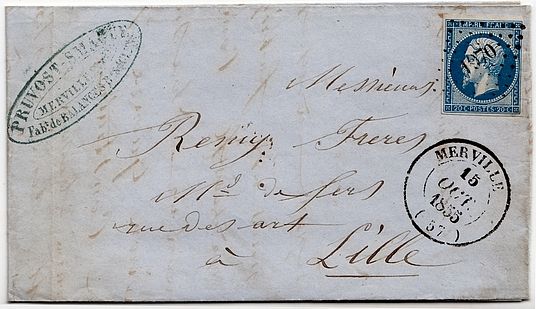 PRUVOST-SMAGUE
MERVILLE
Fabt. de BALANCES
EMPIRE FRANC
1970
20 C. POSTES 20 C.
Messieurs
Remy Freres
Md de fers
rue des art
à Lille
MERVILLE
15
OCT.
1855
(57)